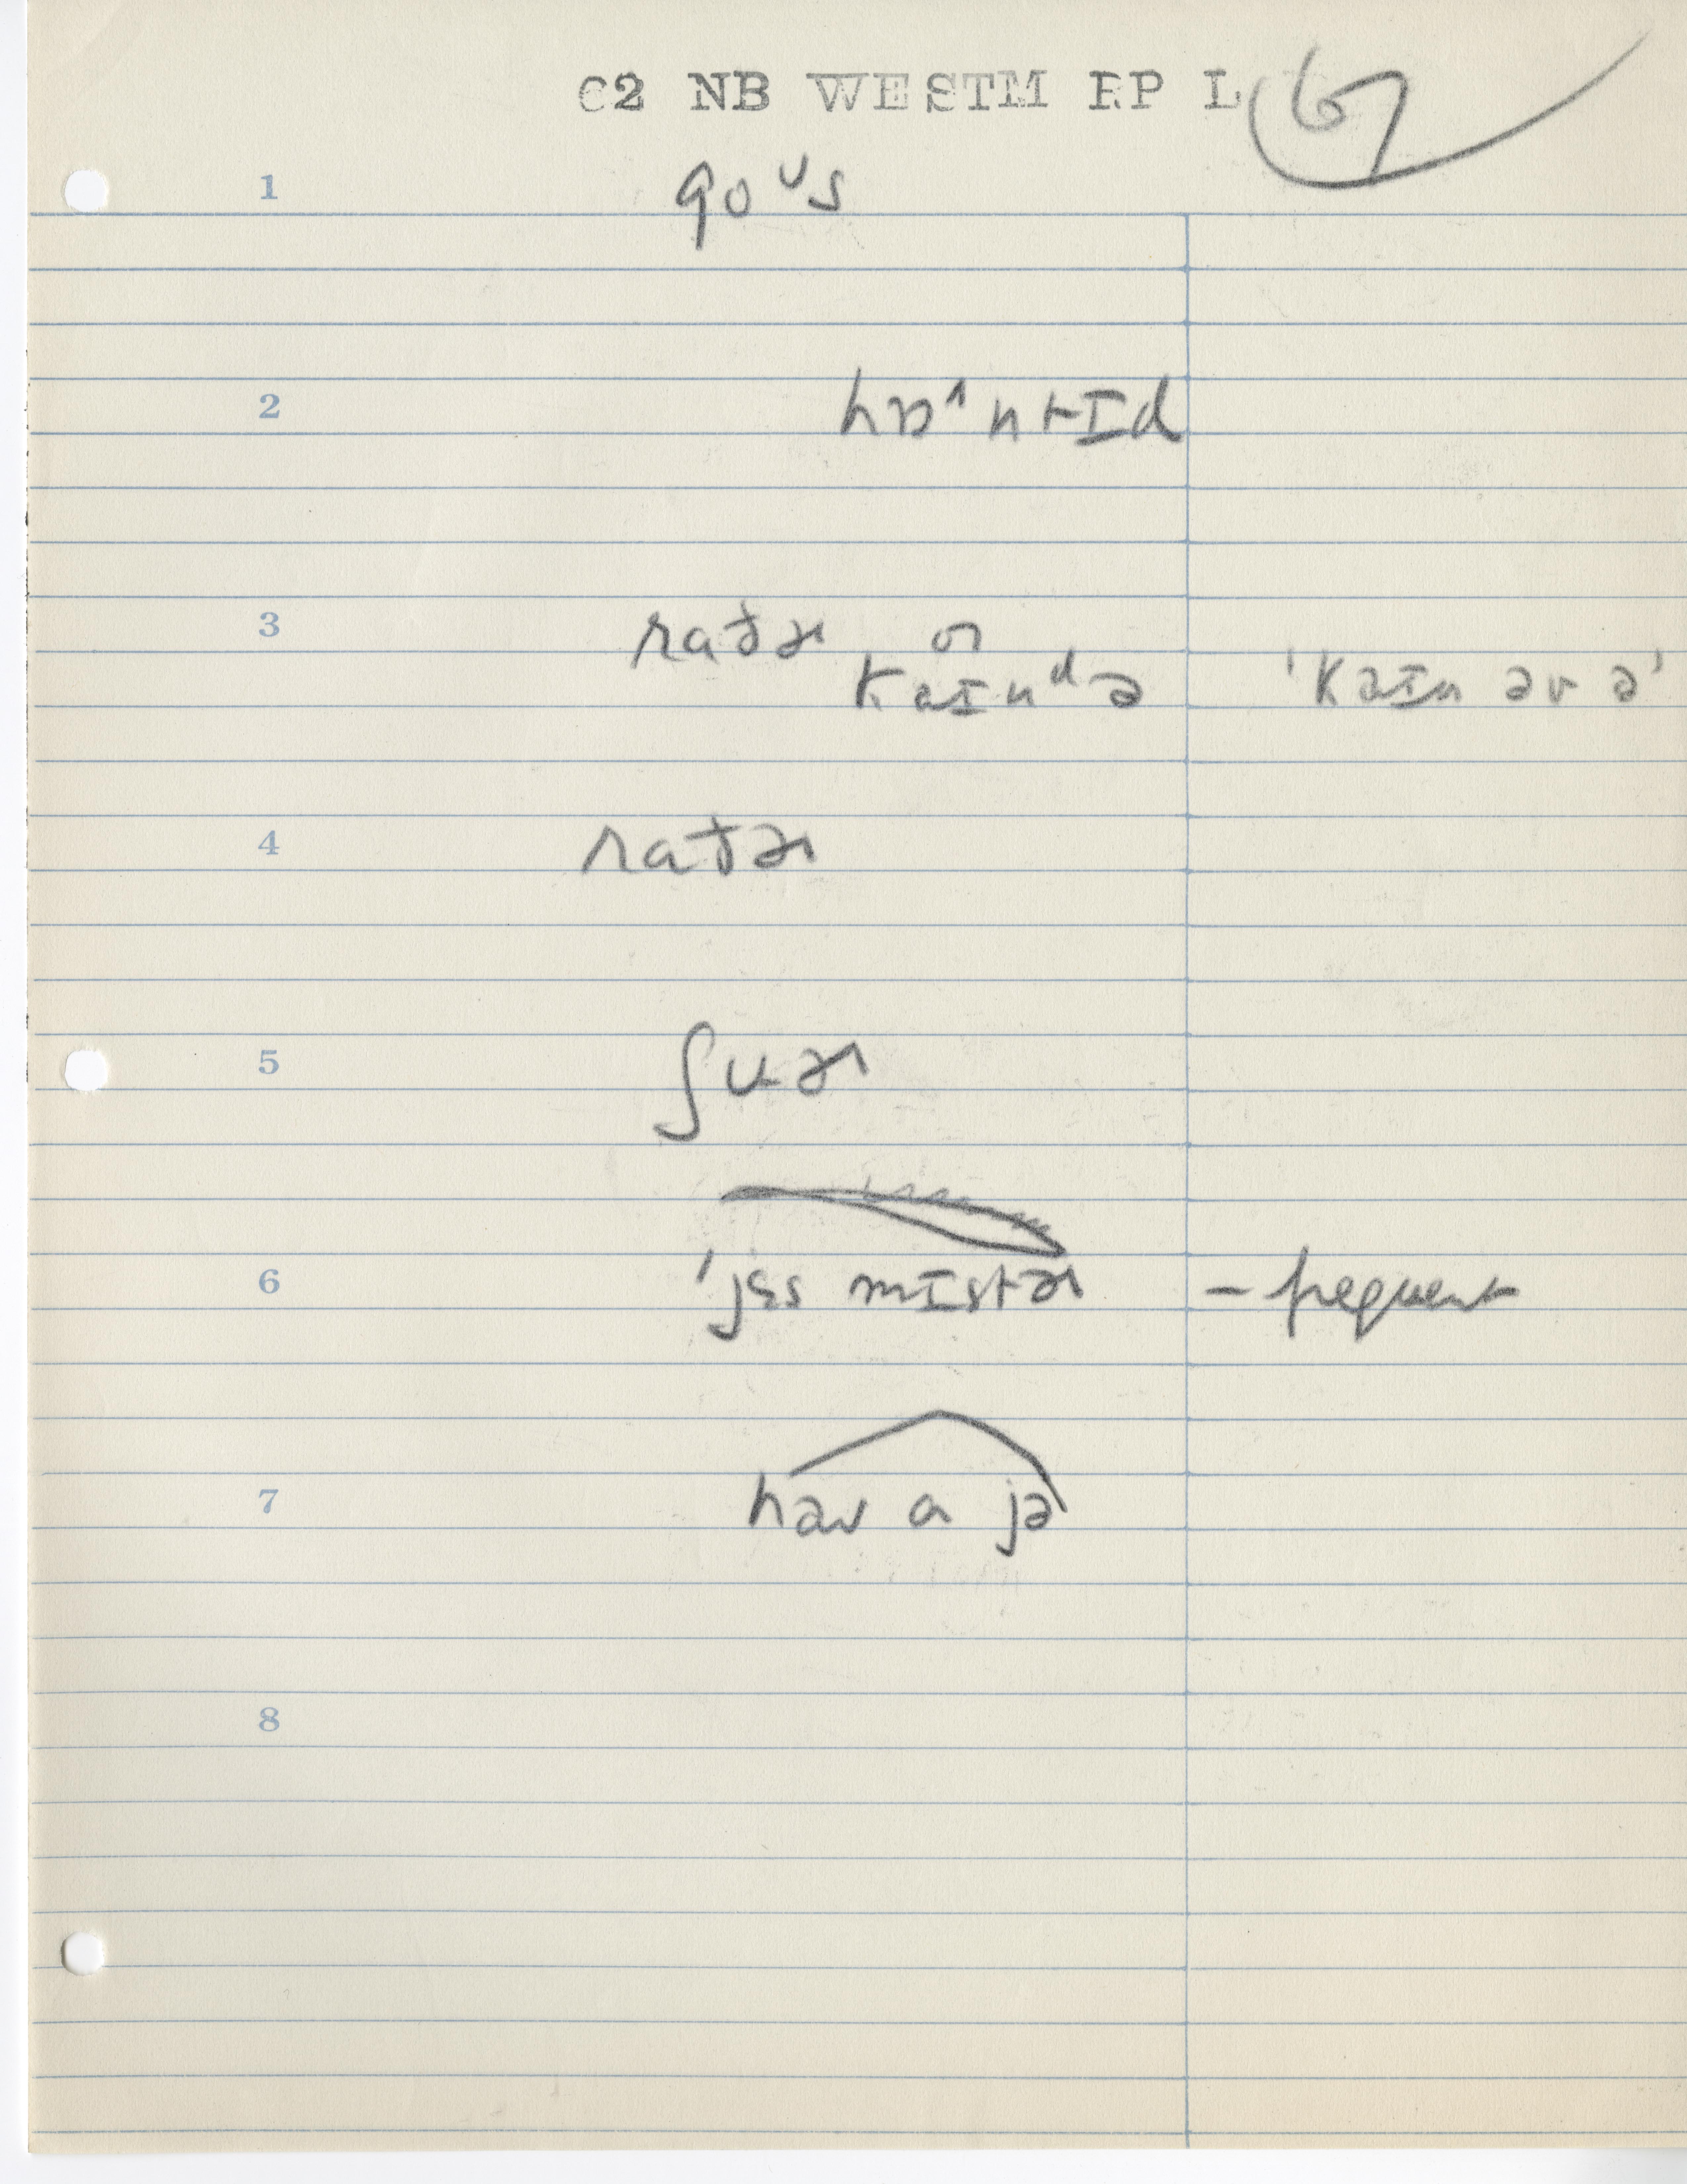 C2 NB WESTM RP L 67
1 goᶷs
2 hɒ^ntɪd
3 raðɚ or
kaɪnᵈə 'kaɪn əv ə'
4 raðɚ
5 ʃuɚ
6 'jɛs mɪstɚ - frequent
7 hav a jə
8